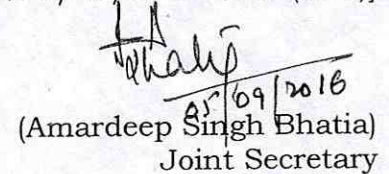 05/09/2016
(Amardeep Singh Bhatia)
Joint Secretary